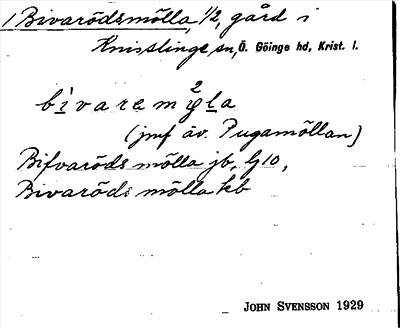 1 Bivarödsmölla, 1/2, gård i
Knisslinge sn, Ö. Göinge hd, Krist. l.
bìvarem ²ỿla
(jmf äv. Pugamöllan)
Bifvaröds mölla jb, G10,
Bivaröds mölla kb
JOHN SVENSSON 1929